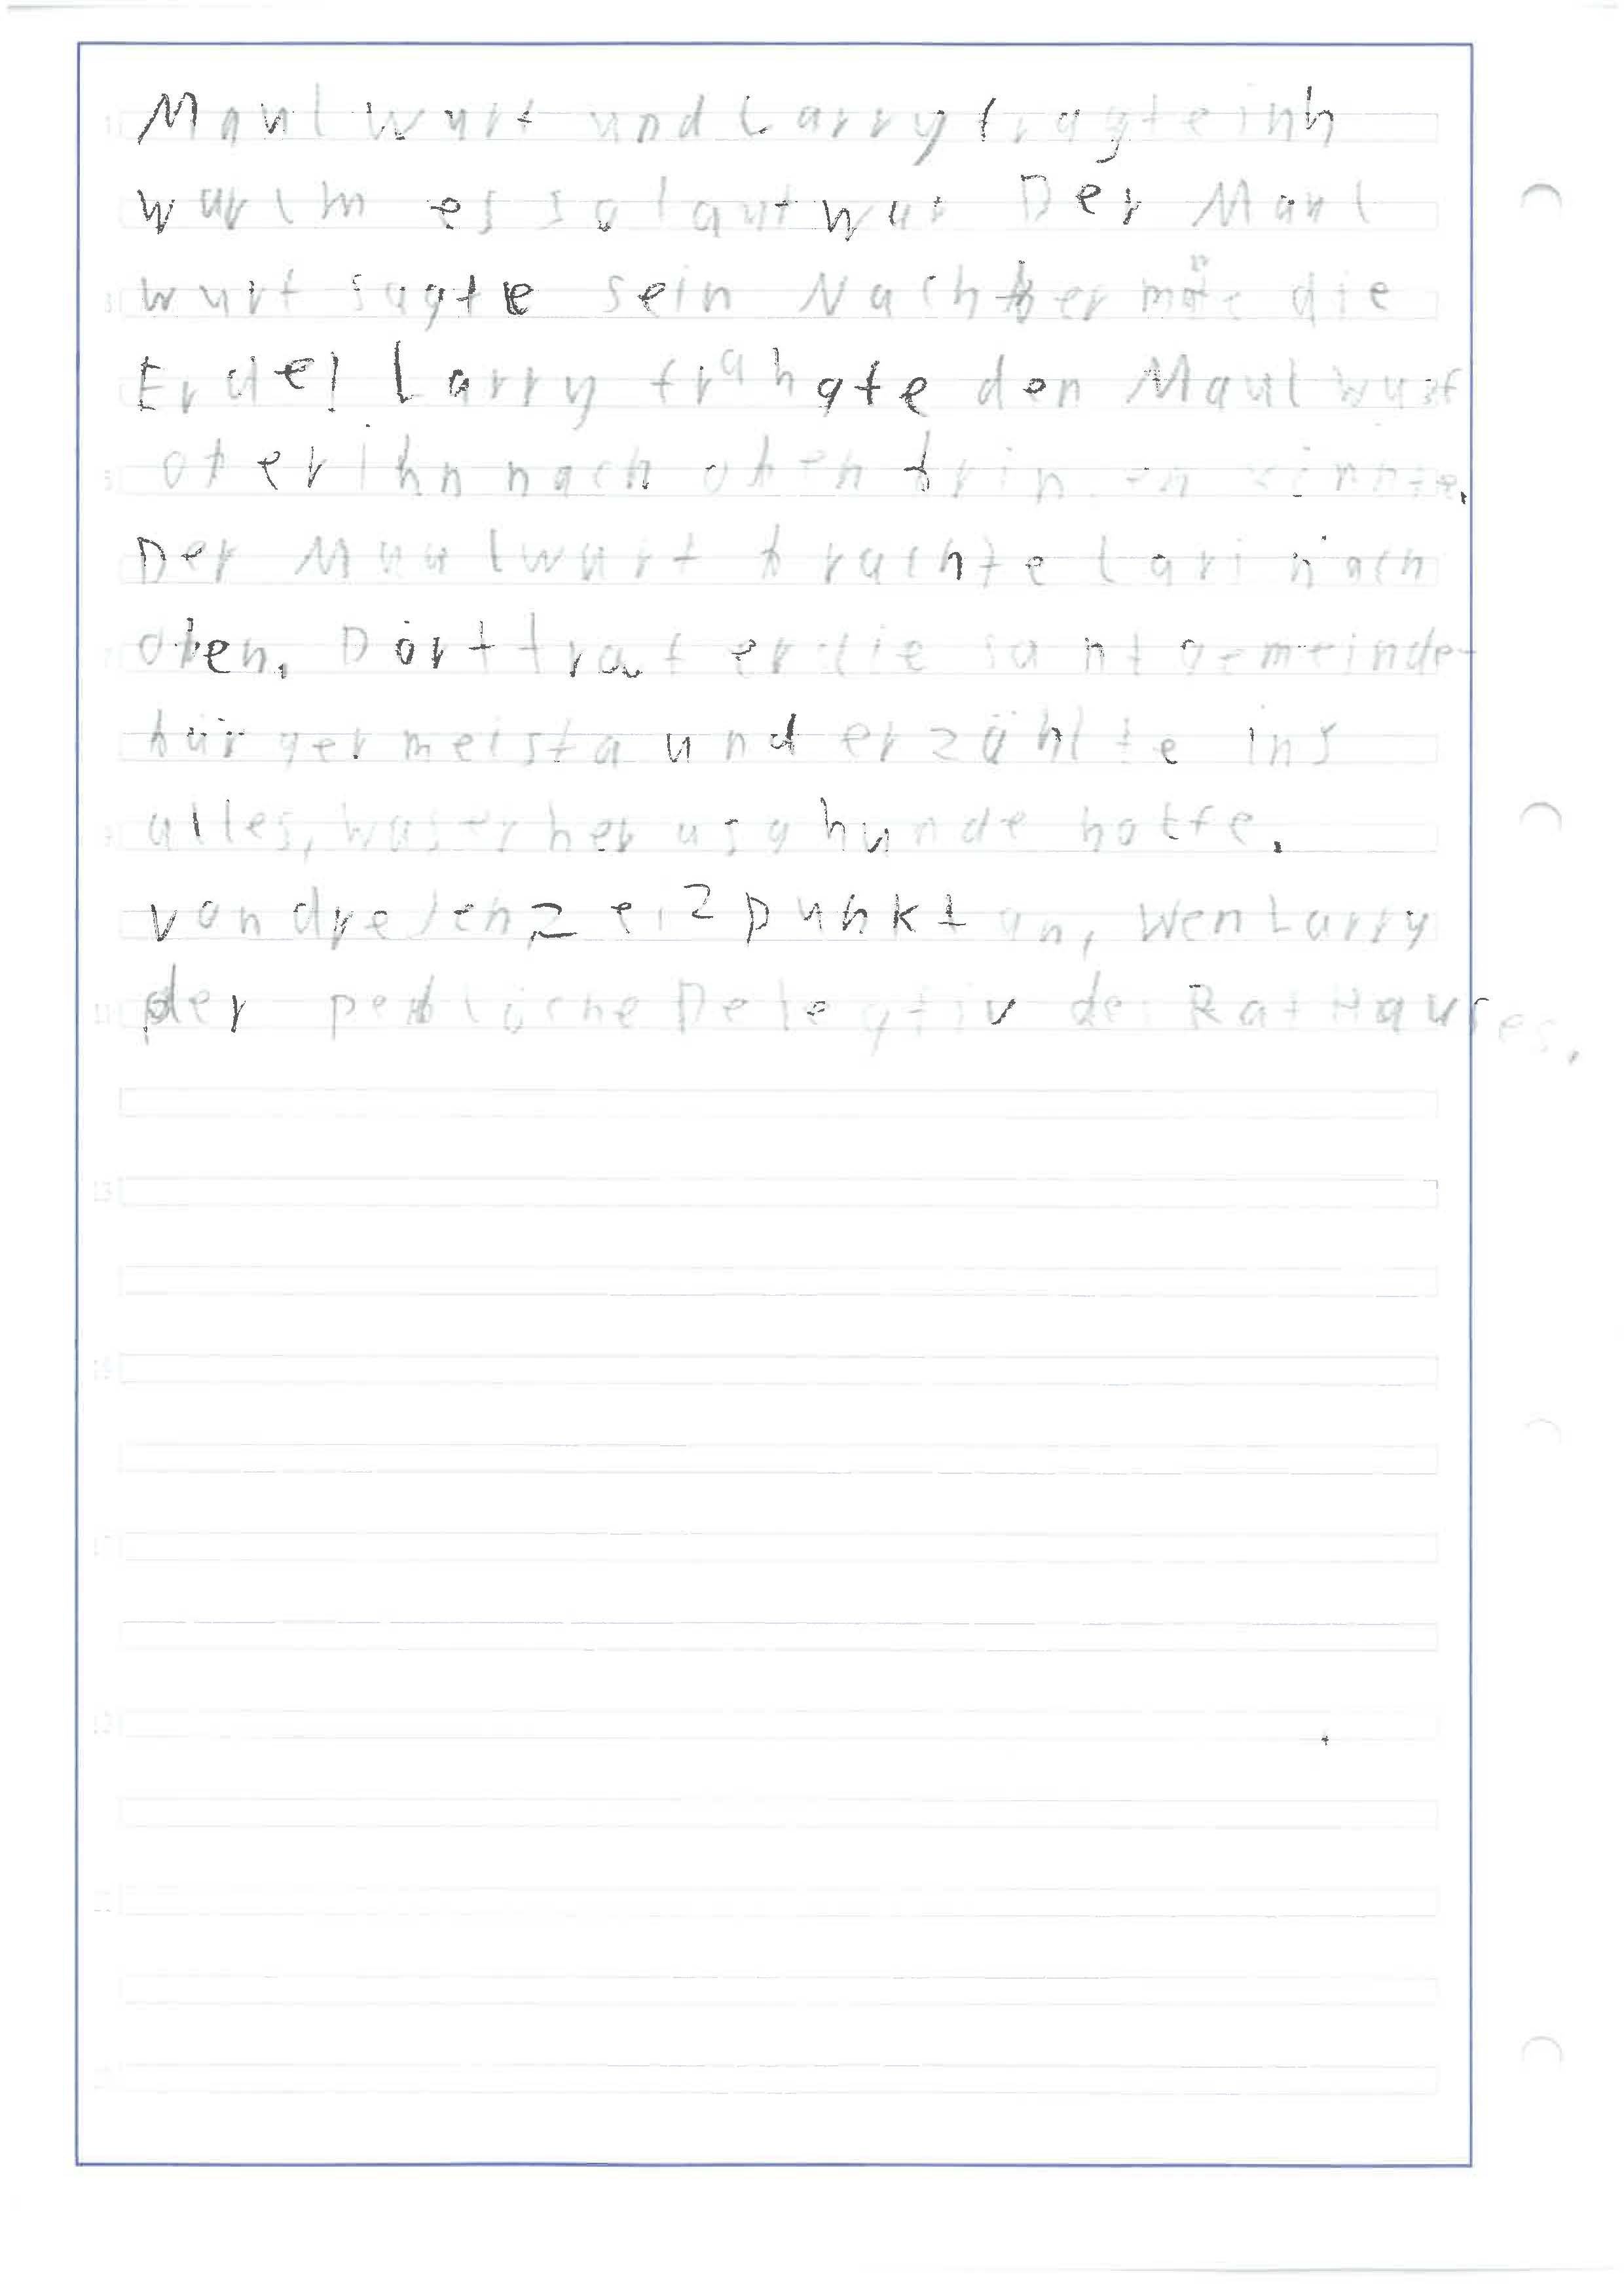 Maulwurf und Larry fragte inh
warum es so laut war Der Maul
wurf sagte sein Nachber mäe die
Erde! Larry frahgte den Maulwurf
ob er ihn nach oben bringen kinnte.
Der Maulwurf brachte Lari nach
oben. Dort traf er die santgemeinde-
bürgermeista und erzählte ins
alles, was er herusghunde hatte.
von dresen zeizpunkt an, wen Larry
der perbliche Delegtiv des Rat Hauses.